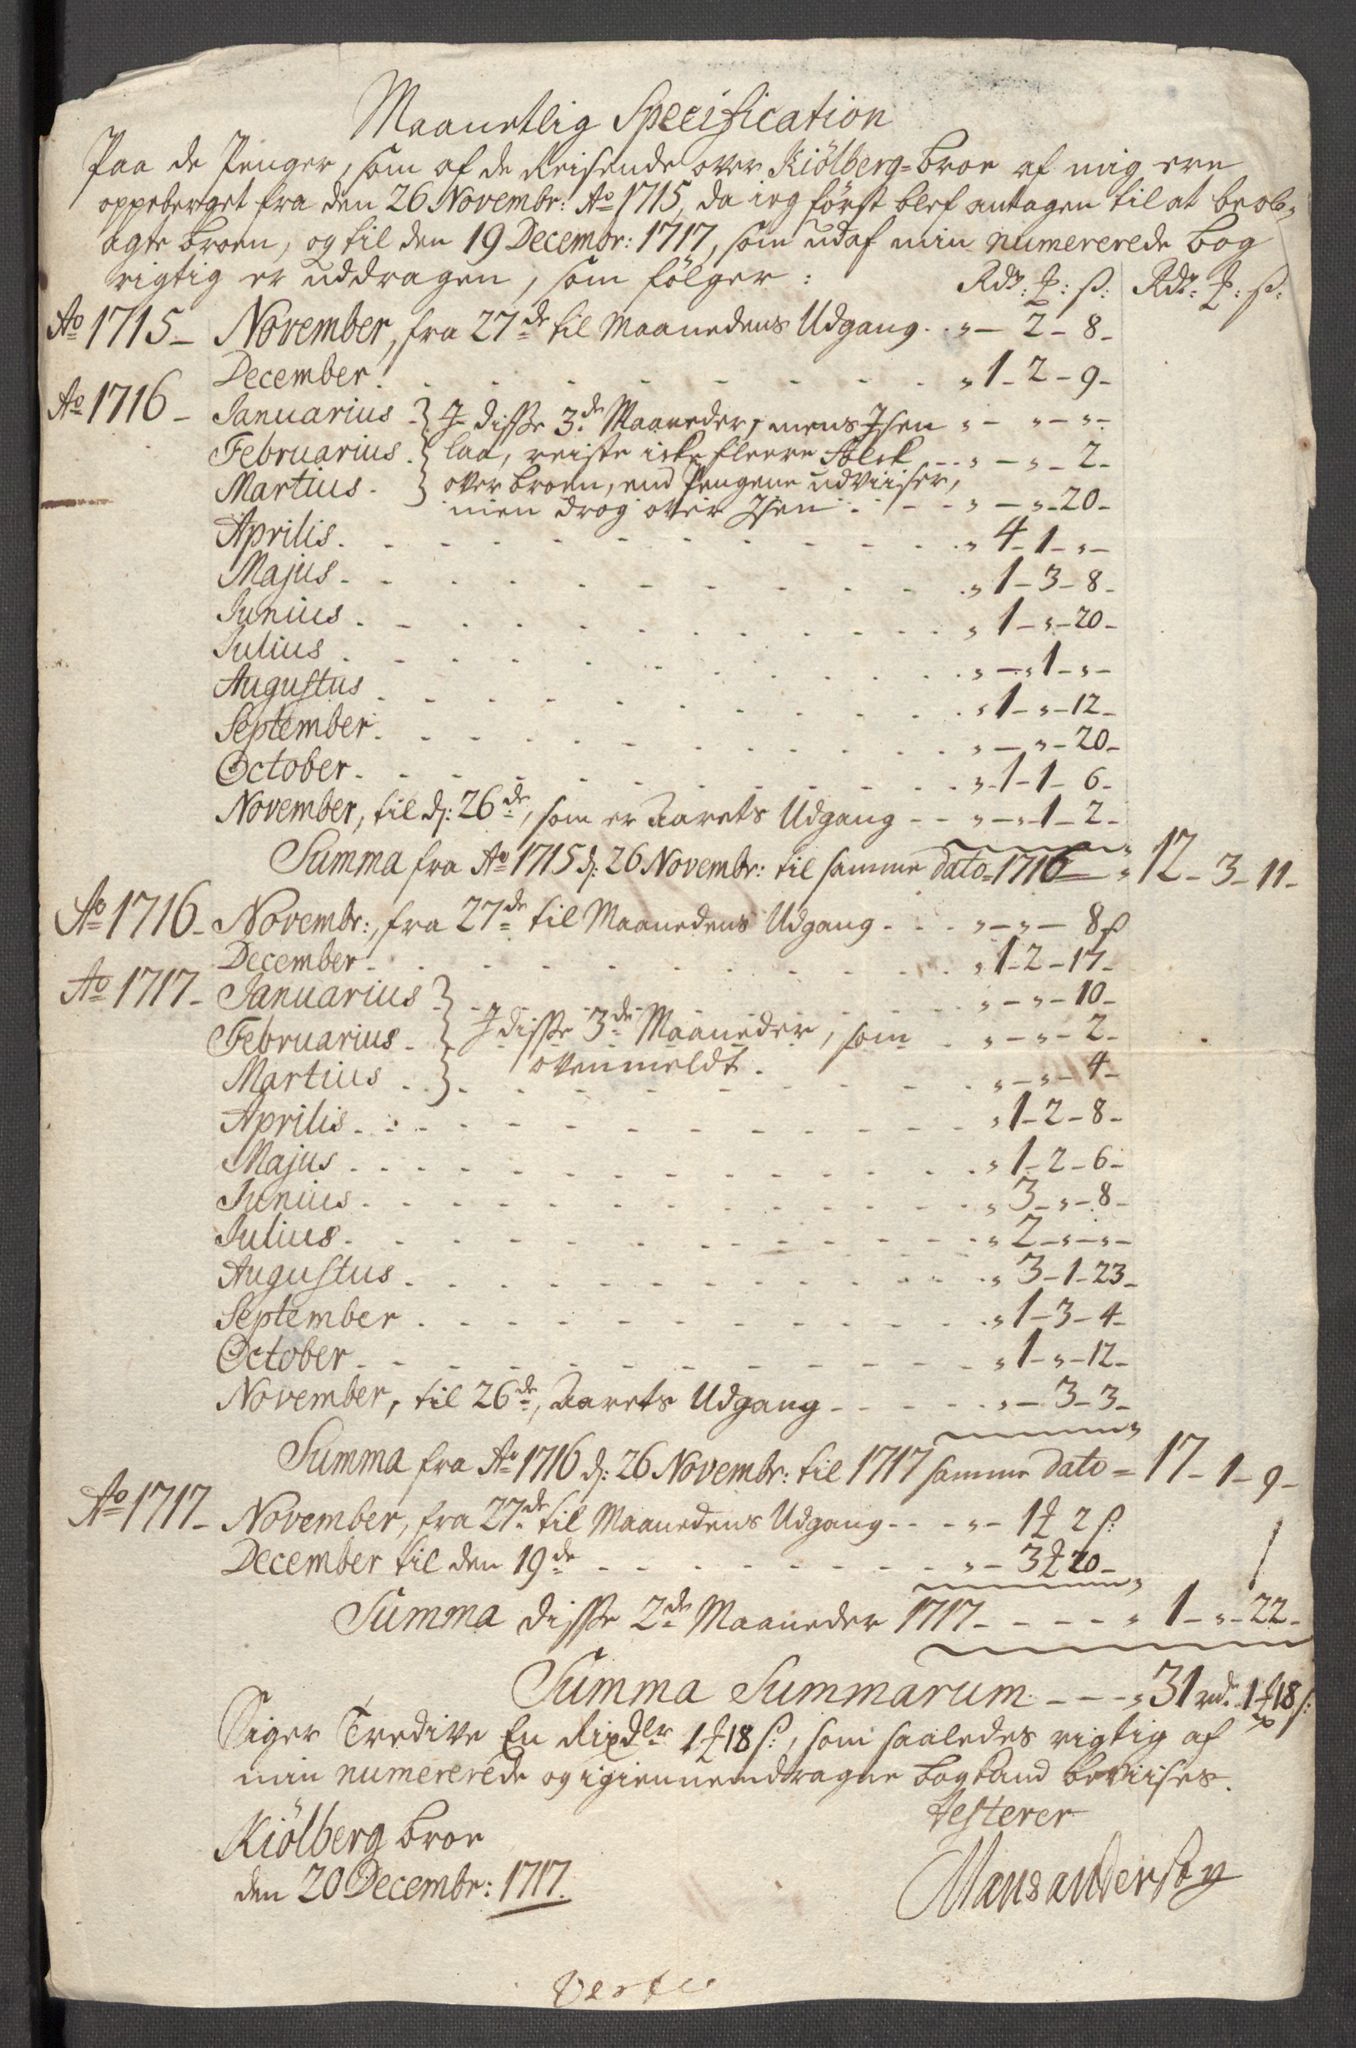 Maanetlig Specification
Paa de Penger, som af de Reisende over Kiölberg=broe af mig ere
oppeberget fra den 26 Novembr: Ao 1715, da ieg först blef antagen til at beob-
agte broen, og til den 19 Decembr: 1717, som udaf min numererede bog
rigtig er uddragen, som fölger: Rdr: ꝑ: ß: Rdr. ꝑ: ß:
Ao 1715 – November, fra 27de til Maanedens Udgang. „ – 2 – 8 –
December. „ 1 – 2 – 9 –
Ao 1716 – Januarius } J disse 3de Maaneder, mens Jsen „ – „ – „ –
Februarius } laa, reiste icke fleere folck „ – „ – 2 –
Martius } over broen, end Pengene udviiser,
men drog over Jsen „ – „ – 20 –
Aprilis. „ 4 – 1 – „ –
Majus. „ 1 – 3 – 8 –
Junius. „ 1 – „ – 20 –
Julius „ – „ 1 – „ –
Augustus „ 1 – „ – 12 –
September. „ – „ – 20 –
October. „ 1 – 1 – 6 –
November, til d: 26de, som er Aarets Udgang „ – „ 1 – 2 –
Summa fra Ao 1715 d: 26 Novembr: til samme dato 1716 „ 12 – 3 – 11 –
Ao 1716 – Novembr:, fra 27de til Maanedens Udgang „ – „ – 8 ß
December. „ 1 – 2 – 17 –
Ao 1717 – Januarius } „ – „ – 10 –
Februarius } J disse 3de Maaneder, som „ – „ – 2 –
Martius } ovenmeldt. „ – „ – 4 –
Aprilis „ 1 – 2 – 8 –
Majus „ 1 – 2 – 6 –
Junius „ 3 – „ – 8 –
Julius „ 2 – „ – „ –
Augustus. „ 3 – 1 – 23 –
September „ 1 – 3 – 4 –
October. „ 1 – „ – 12 –
November, til 26de, Aarets Udgang „ – 3 – 3 –
Summa fra Ao 1716 d: 26 Novembr: til 1717 samme dato = 17 – 1 – 9 –
Ao 1717 – November, fra 27de til Maanedens Udgang „ – 1 ꝑ 2 ß:
December til den 19de „ – 3 ꝑ 20 –
Summa disse 2de Maaneder 1717 – „ 1 – „ – 22 –
Summa Summarum „ 31 rd. 1 ꝑ 18 ß:
Siger Tredive En Rixdlr 1 ꝑ 18 ß:, som saaledes rigtig af
min numererede og igiennemdragne bog kand beviises.
Testerer
Kiölberg broe
den 20 Decembr: 1717.
Mansandersöy
Verte